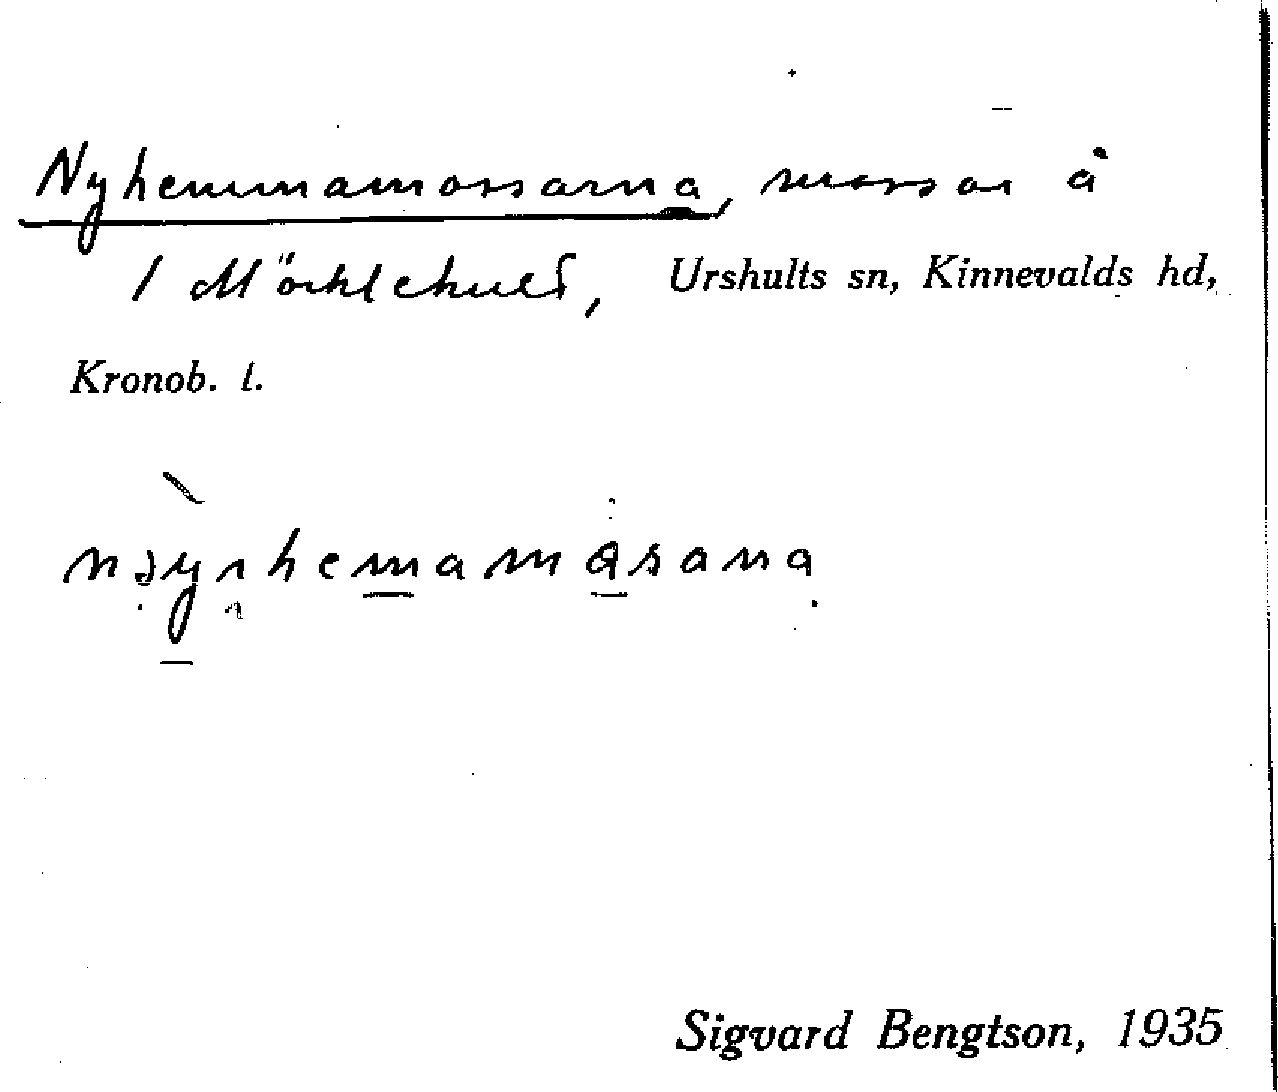 Nyhemmamossarna, mossar å
1 Möcklehult, Urshults sn, Kinnevalds hd,
Kronob. l.
Sigvard Bengtson, 1935